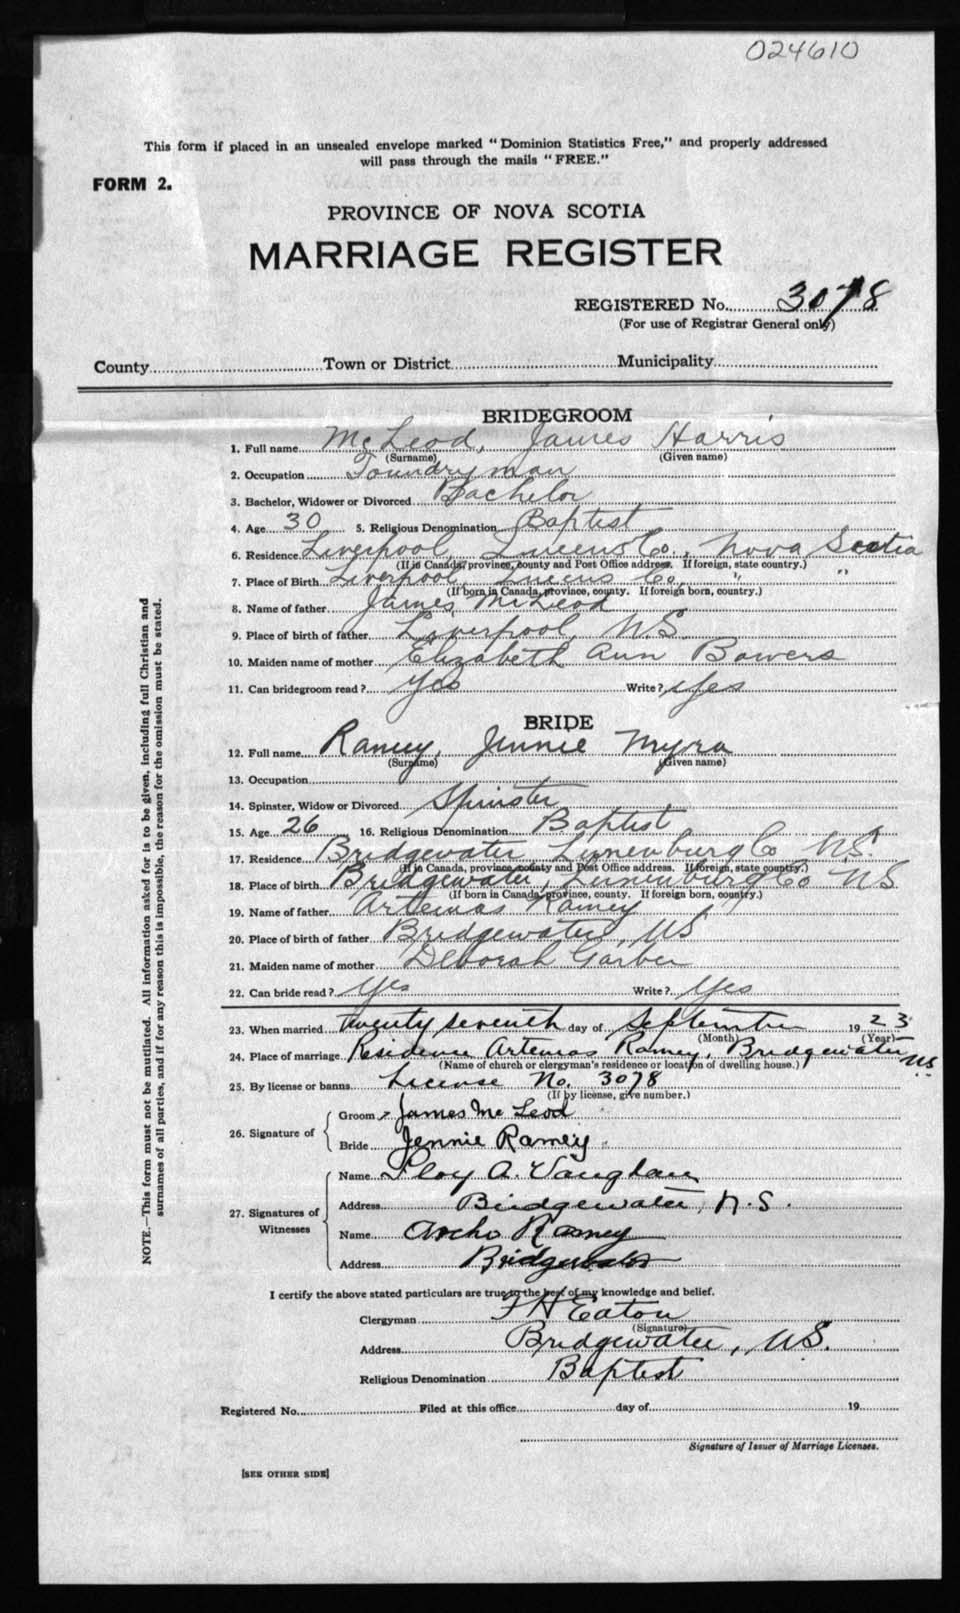 024610
This form if placed in an unsealed envelope marked "Dominion Statistics Free," and properly addressed
will pass through the mails "FREE."
FORM 2.
PROVINCE OF NOVA SCOTIA
MARRIAGE REGISTER
REGISTERED No. 3078
(For use of Registrar General only)
County Town or District Municipality
BRIDEGROOM
1. Full name McLeod, James Harris
(Surname) (Given name)
2. Occupation Foundryman
3. Bachelor, Widower or Divorced Bachelor
4. Age 30 5. Religious Denomination Baptist
6. Residence Liverpool, Queens Co, Nova Scotia
(If in Canada, province, county and Post Office address. If foreign, state country.)
7. Place of Birth Liverpool, Queens Co, " "
(If born in Canada, province, county. If foreign born, country.)
8. Name of father James McLeod
9. Place of birth of father Liverpool, N.S.
10. Maiden name of mother Elizabeth Ann Bowers
11. Can bridegroom read? Yes Write? Yes
BRIDE
12. Full name Ramey, Jennie Myra
(Surname) (Given name)
13. Occupation
14. Spinster, Widow or Divorced Spinster
15. Age 26 16. Religious Denomination Baptist
17. Residence Bridgewater Lunenburg Co N.S.
(If in Canada, province, county and Post Office address. If foreign, state country.)
18. Place of birth Bridgewater, Lunenburg Co NS
(If born in Canada, province, county. If foreign born, country.)
19. Name of father Artemas Ramey
20. Place of birth of father Bridgewater, NS
21. Maiden name of mother Deborah Garber
22. Can bride read? Yes Write? Yes
23. When married twenty seventh day of September 1923
(Month) (Year)
24. Place of marriage Residence Artemas Ramey, Bridgewater NS
(Name of church or clergyman's residence or location of dwelling house.)
25. By license or banns License No. 3078
(If by license, give number.)
26. Signature of Groom James McLeod
Bride Jennie Ramey
27. Signatures of Witnesses Name A. Vaughan
Address Bridgewater, N.S.
Name Archo Ramey
Address Bridgewater
I certify the above stated particulars are true to the best of my knowledge and belief.
Clergyman F H Eaton
(Signature)
Address Bridgewater, N.S.
Religious Denomination Baptist
Registered No. Filed at this office day of 19
Signature of Issuer of Marriage Licenses.
[SEE OTHER SIDE]
NOTE.—This form must not be mutilated. All information asked for is to be given, including full Christian and
surnames of all parties, and if for any reason this is impossible, the reason for the omission must be stated.